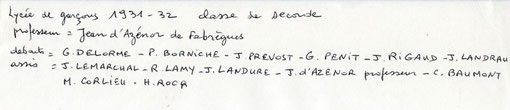 Lycée de garçons 1931-32 classe de seconde
professeur = Jean d'Azénor de Fabrègues
debouts = G. DELORME - P. BORNICHE - J PREVOST - G. PENIT - J. RIGAUD - J. LANDRAU
assis = J. LEMARCHAL - R. LAMY - J. LANDURE - J. d'AZENOR professeur - C. BAUMONT
M. CORLIEU - H. ROCQ